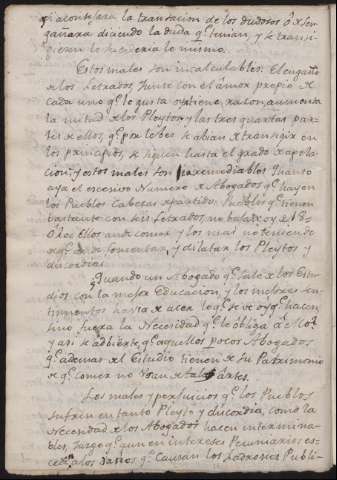 aconsejara la transacion de los dudosos ó desen
gañara diciendo la duda qe tenian, y se transi-
gieran lo hicieria lo mismo.
Estos males son incalculables. El engaño
de los Letrados, junto con el ámor propio de
cada uno qe le gusta sostiene, razon, aumenta
la mitad de los Pleytos, y las tres quartas par
tes de ellos, qe por leibes se abian de transigir en
los principios, se siguen hasta el grado de apela-
cion, y estos males son yrremediables Quanto
aya el escesivo Numero de Abogados qe hay en
los Pueblos Cabezas de partido. Pueblos qe tienen
bastante con seis Letrados, no bajan oy de 18-
Estos an de comer y los mas no teniendo
de qe an de fomentar, y dilatar los Pleytos y
discordias.
Quando un Abogado qe sale de los Estu
dios con la mejor Educacion, y los mejores sen-
timientos hasta de acer lo qe se ve oy qe hacen,
sino fuera la Necesidad qe le obliga á ello?
y asi se adbierte, qe aquellos pocos Abogados
qe ademas del Estudio tienen de su Patrimonio
de qe comer no Usan de tales ártes.
Los males y perjuicios qe los Pueblos
sufren en tanto Pleyto y discordia, como la
Necesidad de los Abogados hacen intermina-
bles, Juzgo qe aun en intereses Pecuniarios es-
ceden a los daños qe Causan los Ladrones Publi-